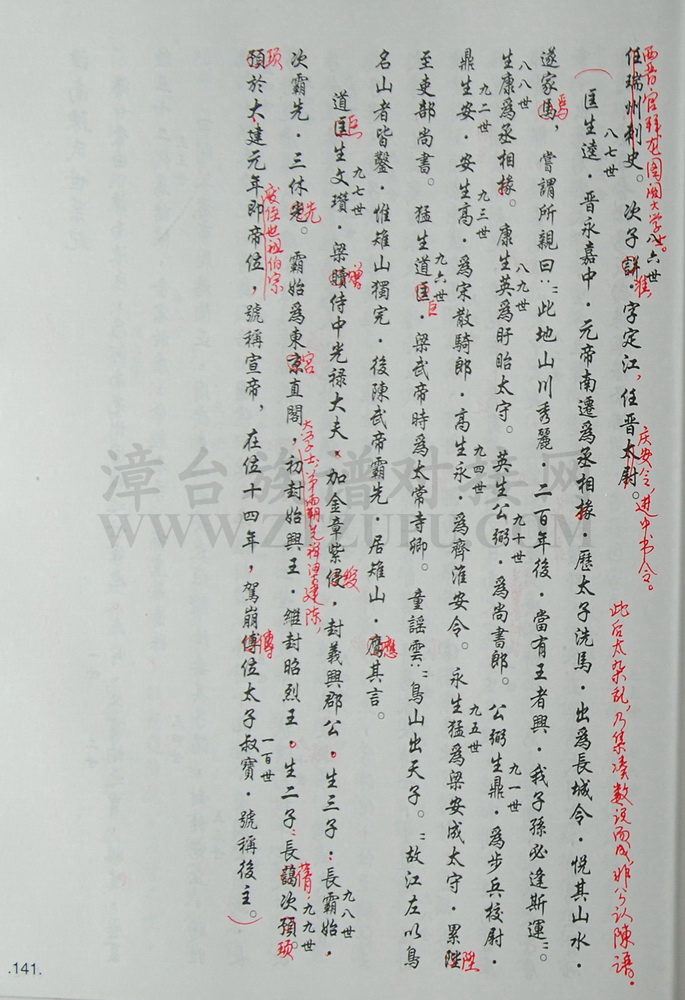 西晋官
大学士。
八六世
任瑞州刺史。次子詊，字定江，任晋太尉。
准
庆安令，进中书令。
此后太杂乱，乃集凑数说而成，非公认陳譜。
八七世
（匡生逵．晋永嘉中．元帝南遷為丞相掾．歷太子洗馬．出為長城令．悦其山水．
遂家馬，嘗謂所親曰：此地山川秀麗．二百年後．當有王者興．我子孫必逢斯運。
焉
八八世
八九世
九十世
九一世
生康為丞相掾。康生英為盱眙太守。英生公弼．為尚書郎。公弼生鼎．為步兵校尉．
九二世
九三世
九四世
九五世
鼎生安．安生高．為宋散騎郎．高生永．為齊淮安令。永生猛為梁安成太守．累陞
陞
九六世
至吏部尚書。猛生道匡．梁武帝時為太常寺卿。童謠雲：鳥山出天子。：故江左以鳥
巨
名山者皆鑿．惟雉山獨完．後陳武帝霸先 居雉山．鷹其言。
應
九七世
九八世
道匡生文瓚．梁贖侍中光禄大夫．加金章紫侵．封義興郡公．生三子：長霸始，
巨
增
绶
次霸先．三休兠。霸始為東京直閣，初封始興王．繼封昭烈王。生二子：長藹次預。
先
宫
大学士
蒨
九九世
頊
預於太建元年即帝位，號稱宣帝，在位十四年，駕崩傅位太子叔寶．號稱後主。）
頊
傳
一百世
漳台族谱对接网
WWW.ZTZUPU.COM
.141.